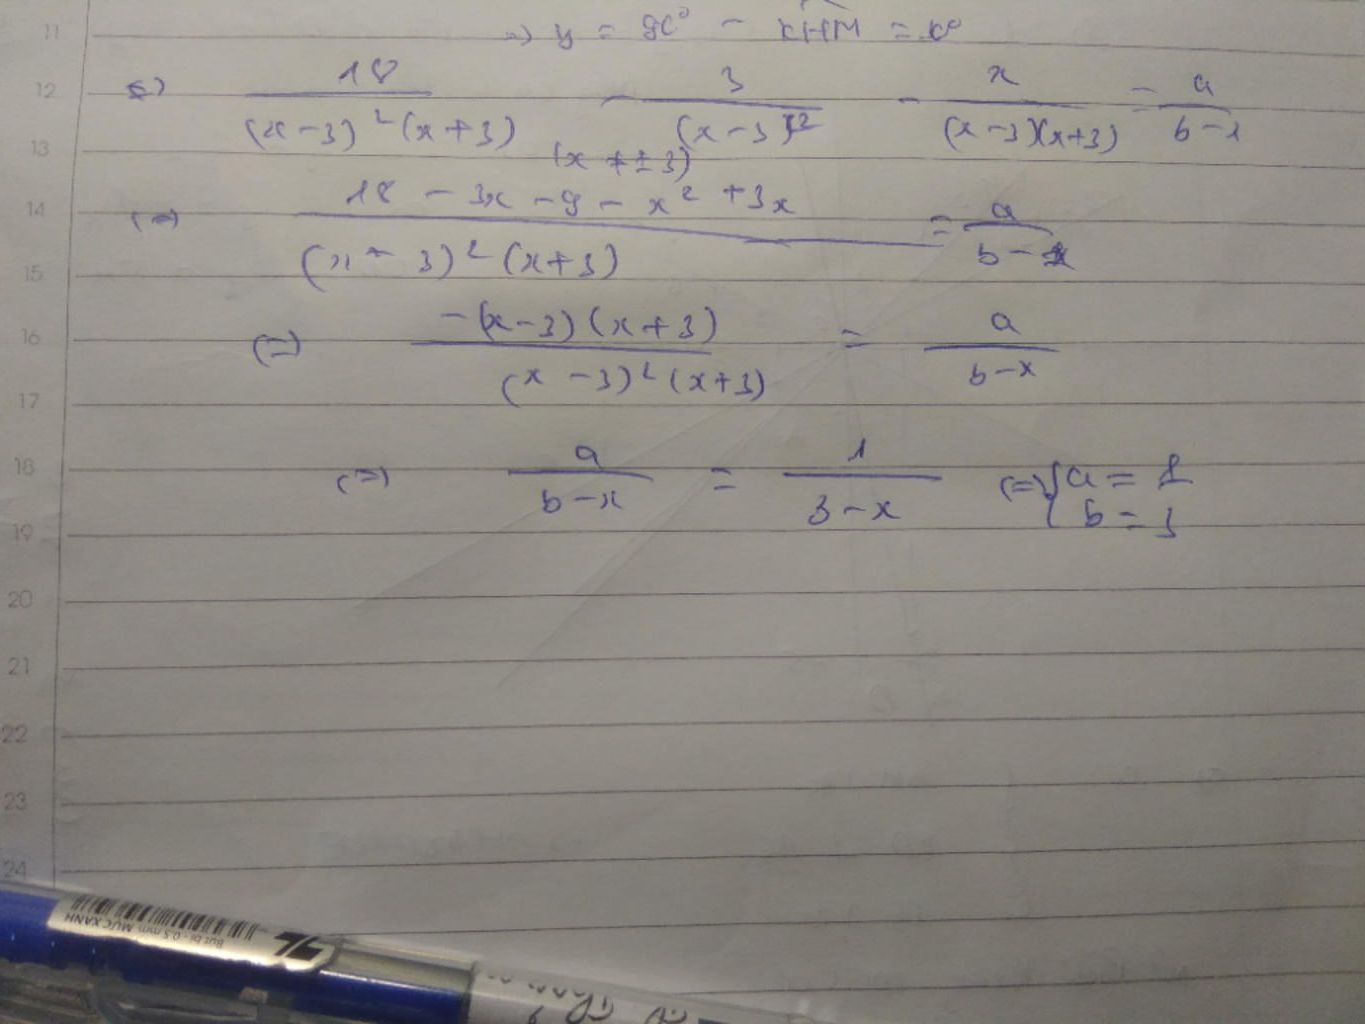 11 => y = 90° - xHM = x°
12 5) 18/((x-3)²(x+3)) - 3/(x-3)² - x/((x-3)(x+3)) = a/(b-x)
13 (x ≠ ±3)
14 (=) (18 - 3x - 9 - x² + 3x)/((x-3)²(x+3)) = a/(b-x)
15
16 (=) (-(x-3)(x+3))/((x-3)²(x+3)) = a/(b-x)
17
18 (=) a/(b-x) = 1/(3-x) (=) { a = 1
19 b = 3
20
21
22
23
24
Bút bi - 0.5 mm MỰC XANH
TL